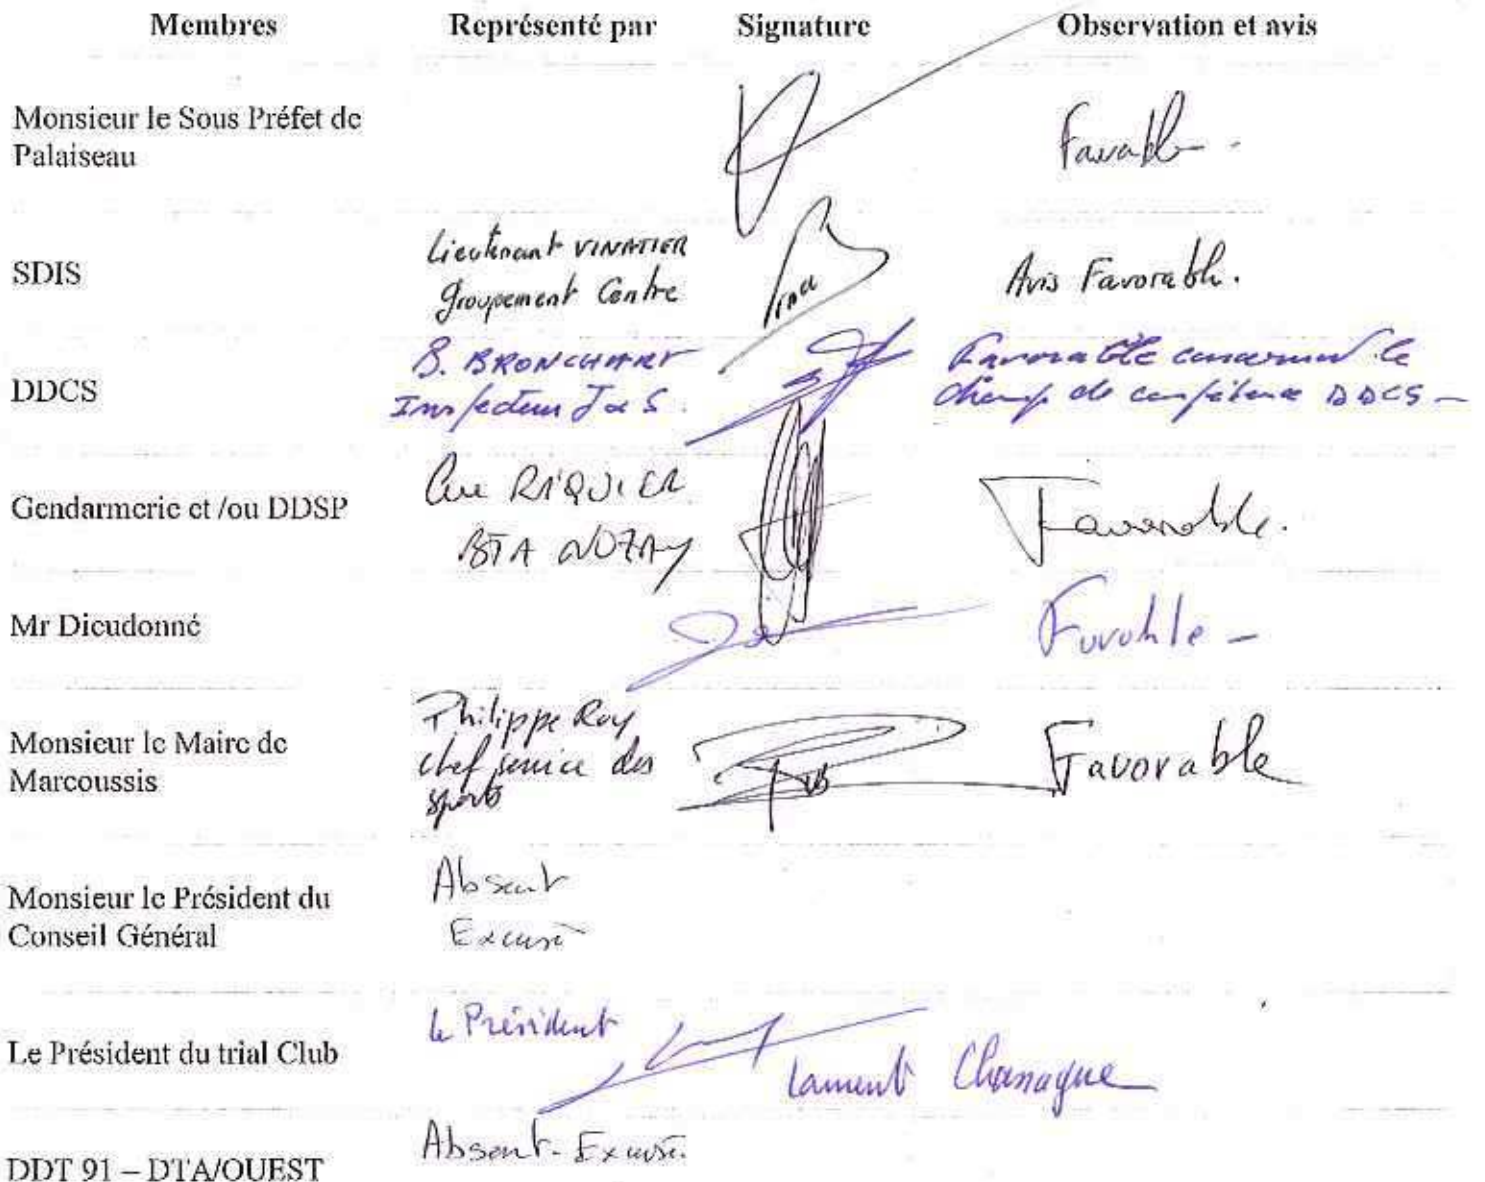 Membres Représenté par Signature Observation et avis
Monsieur le Sous Préfet de
Palaiseau
Favorable -
SDIS
Lieutenant VINATIER
Groupement Centre
Avis Favorable.
DDCS
B. BRONCHART
Inspecteur J & S.
Favorable concernant le
champ de compétence DDCS -
Gendarmerie et /ou DDSP
RIQUIER
BTA NOZAY
Favorable.
Mr Dieudonné
Favorable -
Monsieur le Maire de
Marcoussis
Philippe Roy
chef service des
sports
Favorable
Monsieur le Président du
Conseil Général
Absent
Excusé
Le Président du trial Club
Le Président
Laurent Chanague
DDT 91 – DTA/OUEST
Absent - Excusé.